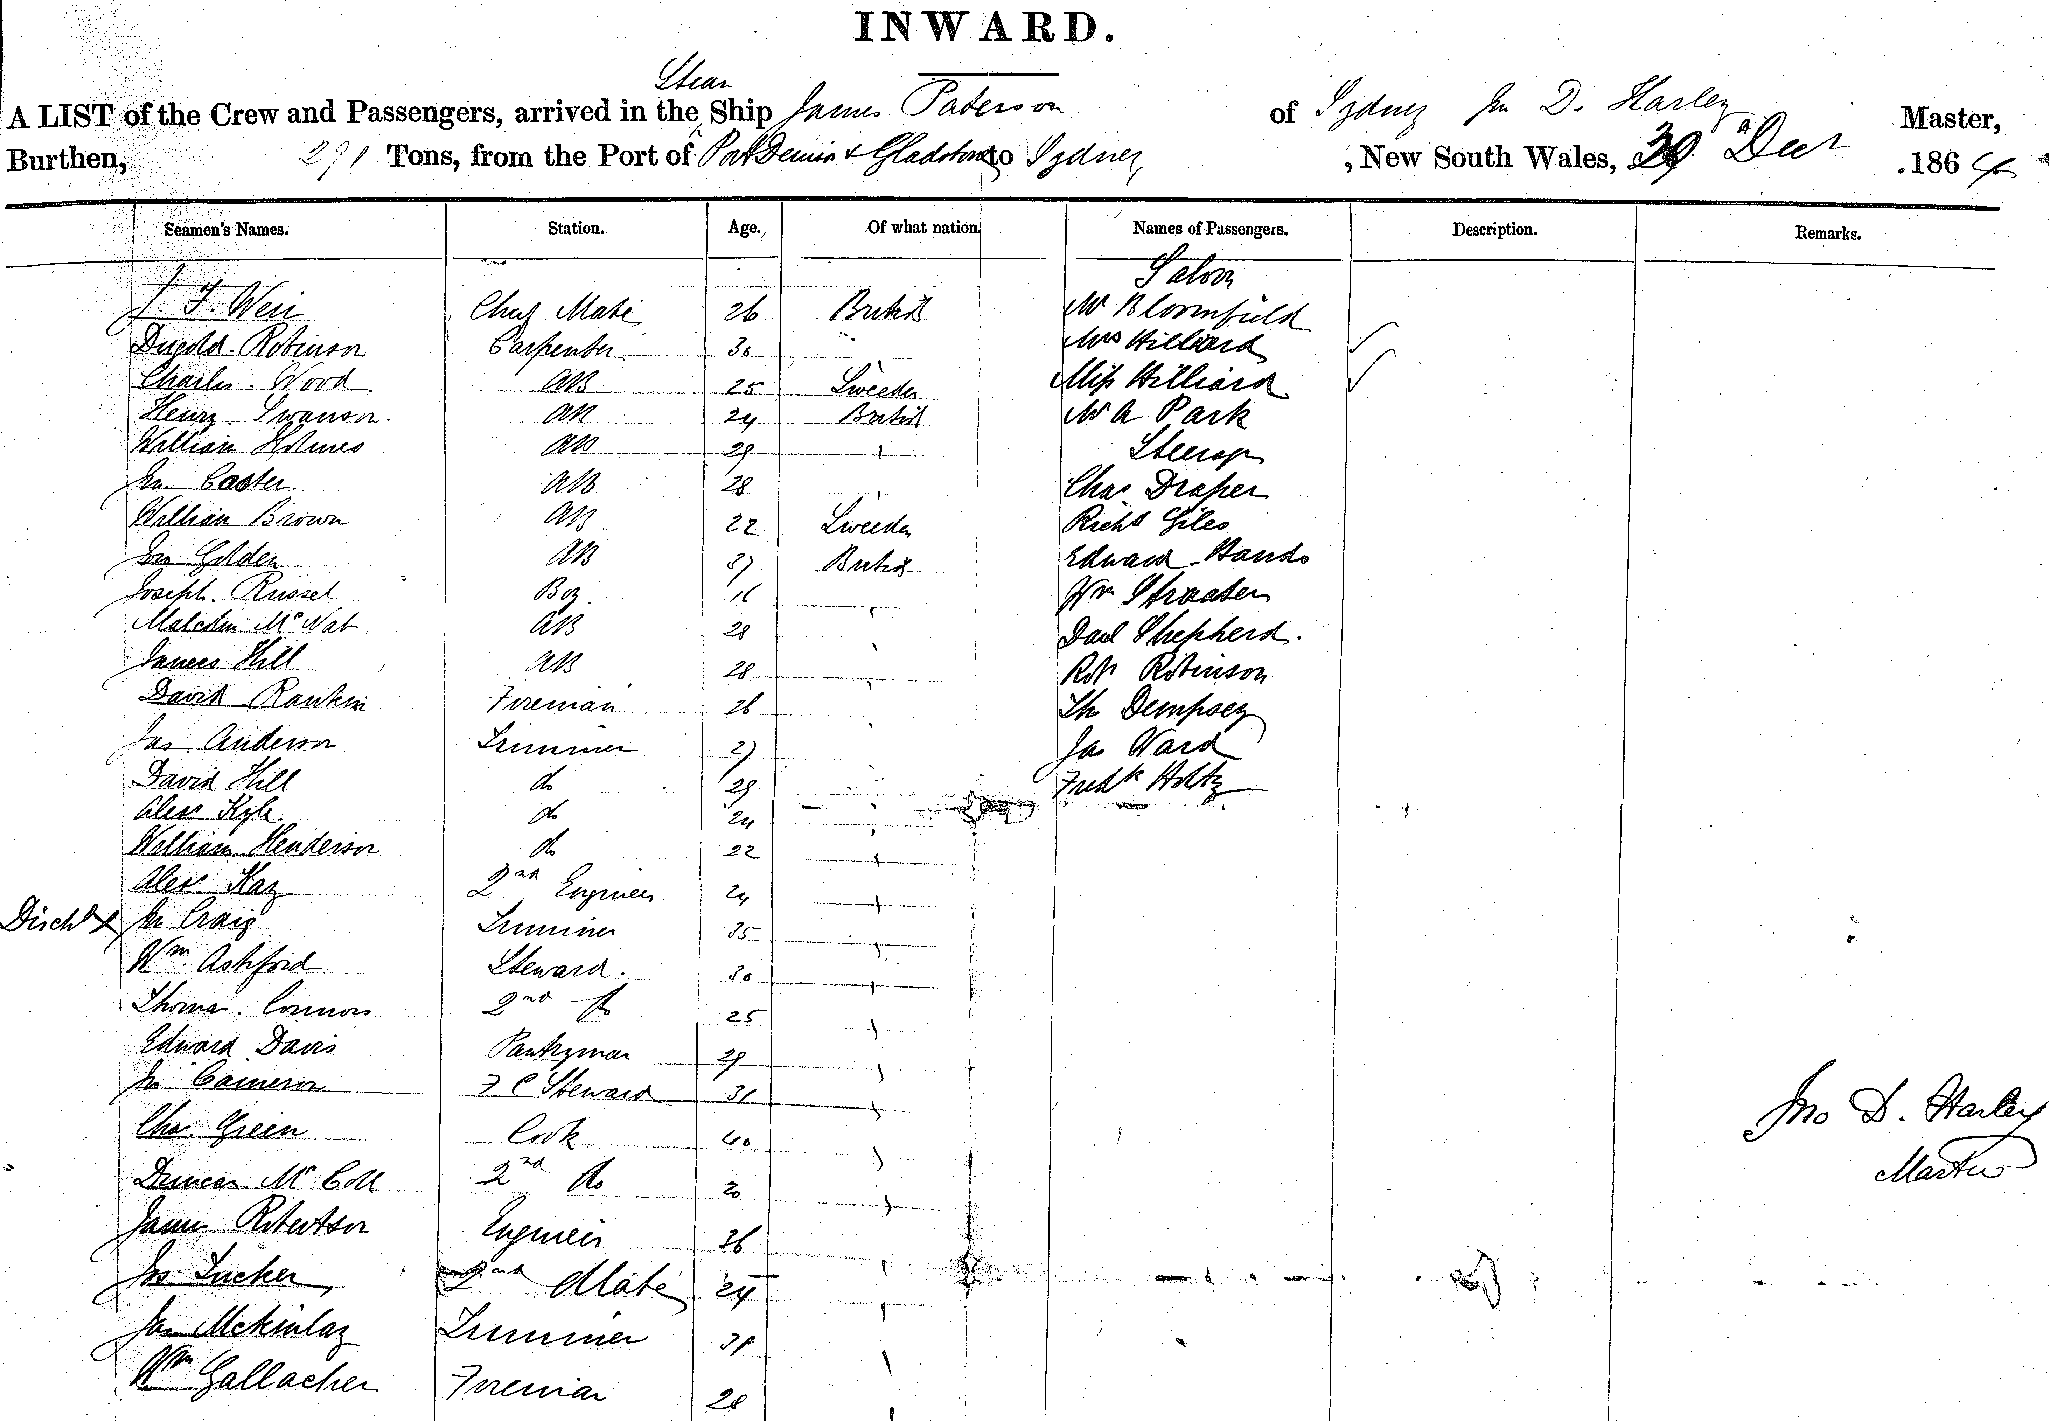 INWARD.
Steam
A LIST of the Crew and Passengers, arrived in the Ship James Paterson of Sydney Jn D. Harley Master,
Burthen, 291 Tons, from the Port of Port Denison & Gladstone to Sydney, New South Wales, 30 Decr .1864
Seamen's Names. Station. Age. Of what nation Names of Passengers. Description. Remarks.
Saloon
J. F. Weir Chief Mate 26 British Mr Bloomfield
Dugald Robinson Carpenter 30 " Mrs Hilliard ✓
Charles Wood AB 25 Sweeden Miss Hilliard ✓
Henry Swanson AB 24 British Mr A Park
William Holmes AB 29 " Steerage
Jn Caster AB 28 " Chas Draper
William Brown AB 22 Sweeden Richd Giles
Jno Golden AB 37 British Edward Hands
Joseph Russel Boy 16 " Wm Straaten
Malcolm McNab AB 28 " Danl Shepherd.
James Hill AB 28 " Robt Robinson
David Rankin Fireman 26 " Th Dempsey
Jas Anderson Trimmer 27 " Jas Ward
David Hill do 29 " Fredk Holtz
Alexr Kyle do 24 "
William Henderson do 22 "
Alexr Kay 2nd Engineer 24 "
Dischd X Jn Craig Trimmer 35 "
Wm Ashford Steward. 30 "
Thomas Connors 2nd do 25 "
Edward Davis Pantryman 29 "
Jn Cameron F C Steward 31 "
Chas Green Cook 40 "
Jno D. Harley
Duncan McColl 2nd do 20 " Master
James Robertson Engineer 36 "
Jos Tucker 2nd Mate 24 "
Jas McKinlay Trimmer 31 "
Wm Gallacher Fireman 28 "